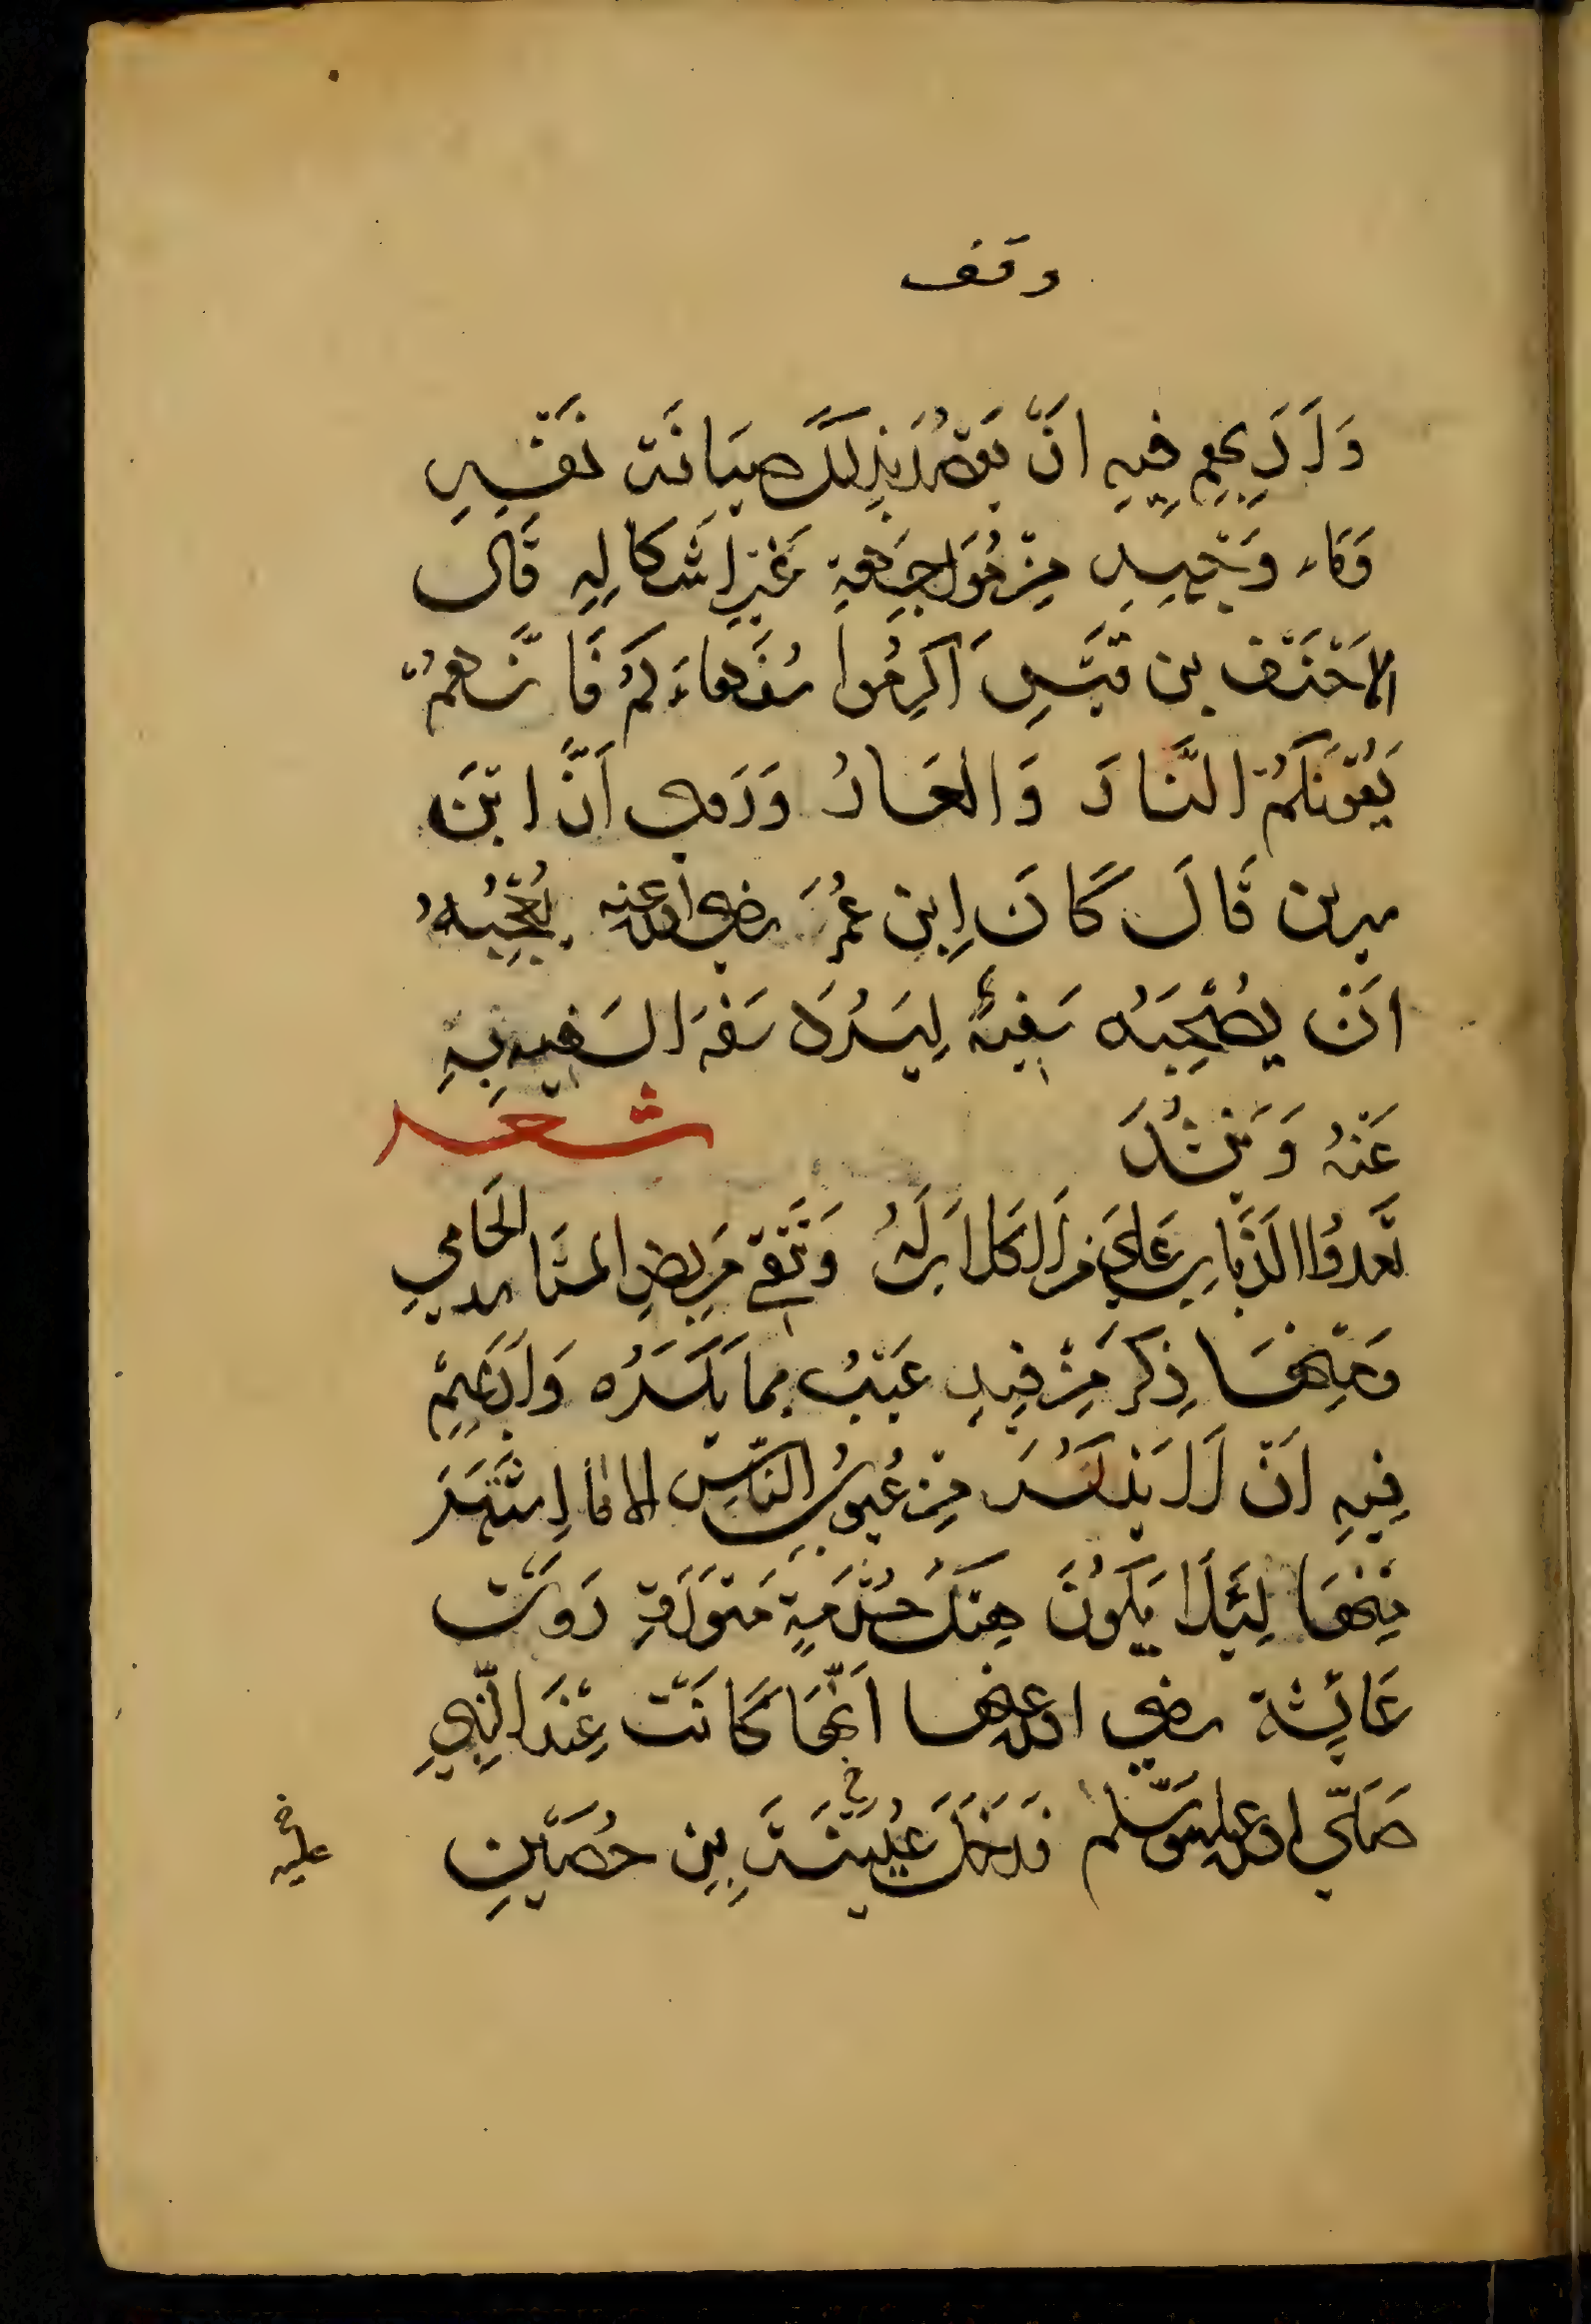 وقف
وَاَدَبهم فيهِ انَّ يَقصُدَ بذلكَ صيَانَة نَفْسِهِ
وَمَاء وَجْهِهِ مِنْ مُوَاجَهَةِ غَيْرِ اشكَالِهِ قَال
الاحْنَف بن قَيْسِ اَكرِمُوا سُفَهاءَكُمْ فَانَّهمُ
يَقُونَكُمُ النَّارَ وَالعَارُ وَرَوى اَنَّ ابْنَ
سيرين قَالَ كَانَ اِبن عُمَرَ رضي الله عنه يُعْجِبُهُ
انَ يصُحْبَهُ سَفِيهٌ لِيَرُدَّ سَفَهَ السَفيه بِهِ
عَنْهُ وَيُنْشُدَ شعر
تَعدوُا الذّياب عَلى مَن لا كلاب لَهُ وَتَتَّقي مَربِضِ المستَاسد الحَامي
وَمِنْهَا ذِكرَ مَنْ فيهِ عَيْبُ بما يَكرَهُ وَاَدَبهِمْ
فِيهِ اَنْ لَا يَذكُرَ مِنْ عُيوُبِ النَّاسِ الا مَا اِشتَهَرَ
مِنْهَا لِئَلا يَكوُنَ هتكَ حُرْمَةٍ مَتوَلاةِ رَوَتْ
عَائِشة رضي الله عنها اَنَّهَا كَانَتْ عِنْدَ النَّبِي
صَلّي الله عليه وسَلم فَدَخَلَ عُيَيْنَةَ بِنِ حُصَيْنِ
خ
خ
عليه